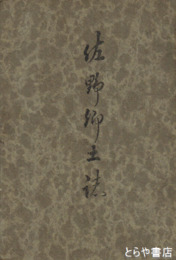 佐野郷土誌
とらや書店